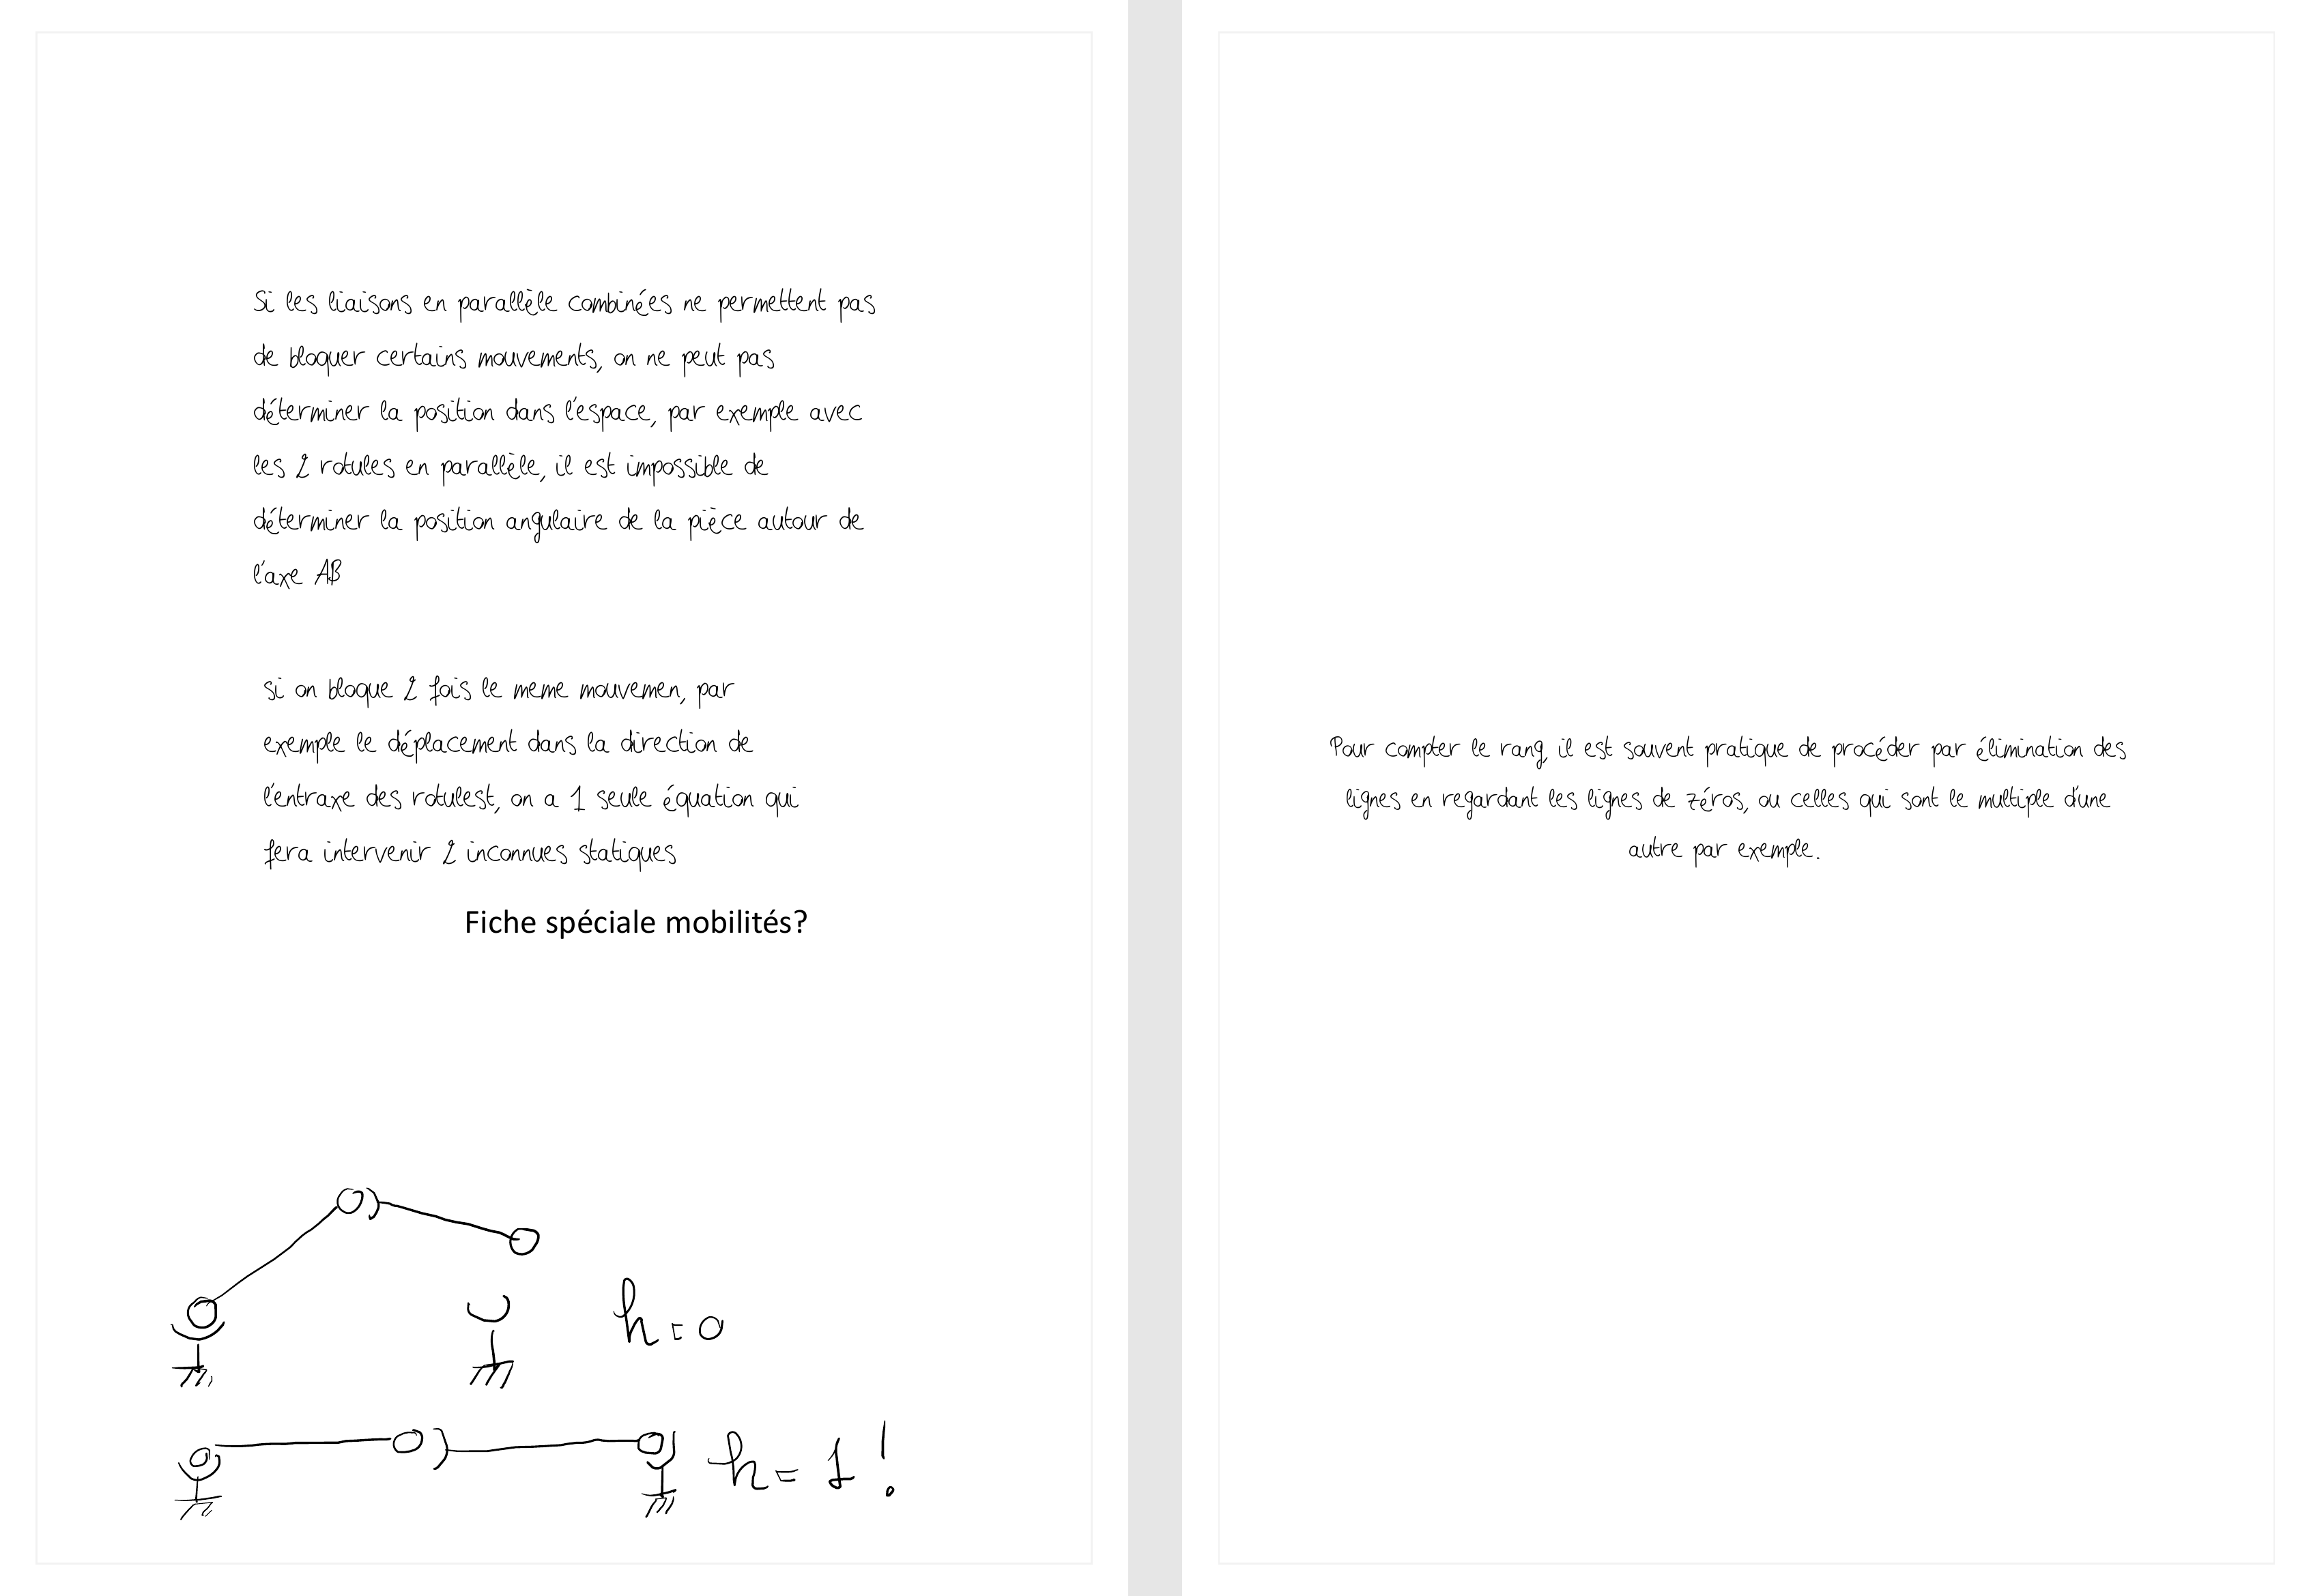 Si les liaisons en parallèle combinées ne permettent pas
de bloquer certains mouvements, on ne peut pas
déterminer la position dans l'espace, par exemple avec
les 2 rotules en parallèle, il est impossible de
déterminer la position angulaire de la pièce autour de
l'axe AB
si on bloque 2 fois le meme mouvemen, par
exemple le déplacement dans la direction de
l'entraxe des rotulest, on a 1 seule équation qui
fera intervenir 2 inconnues statiques
Fiche spéciale mobilités?
h=0
h=1!
Pour compter le rang, il est souvent pratique de procéder par élimination des
lignes en regardant les lignes de zéros, ou celles qui sont le multiple d'une
autre par exemple.